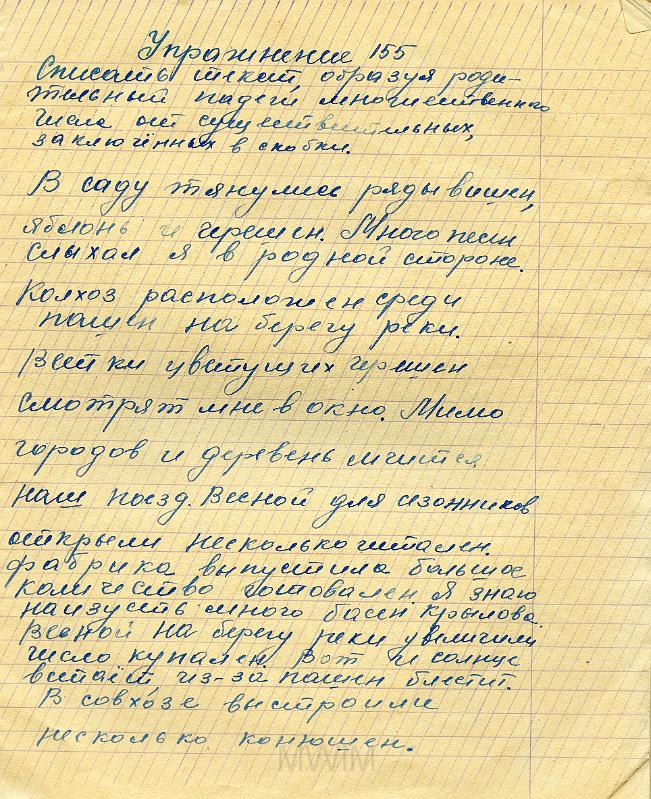 Упражнение 155
Списать текст, образуя роди-
тельный падеж множественного
числа от существительных,
заключённых в скобки.
В саду тянулись ряды вишен,
яблонь и черешен. Много песен
слыхал я в родной стороне.
Колхоз расположен среди
пашен на берегу реки.
Ветки цветущих черешен
смотрят мне в окно. Мимо
городов и деревень мчится
наш поезд. Весной для сезонников
открыли несколько читален.
Фабрика выпустила большое
количество готовален. Я знаю
наизусть много басен Крылова.
Весной на берегу реки увеличили
число купален. Вот и солнце
встаёт из-за пашен блестит.
В совхозе выстроили
несколько конюшен.
MWIM